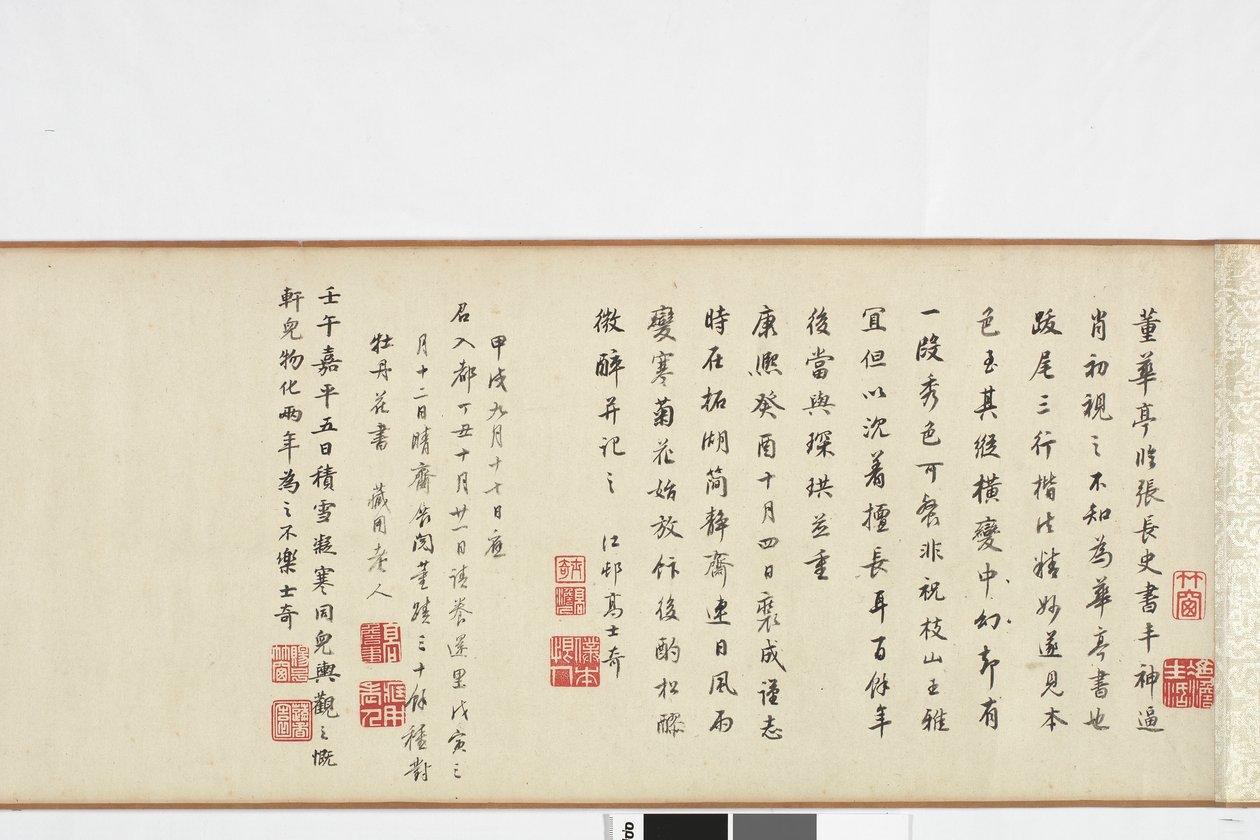 董華亭臨張長史書丰神逼
肖初視之不知為華亭書也
跋尾三行楷法精妙遂見本
色至其縱橫變中之幻却有
一段秀色可餐非祝枝山王雅
宜但以沈着擅長耳百餘年
後當與琛珙並重
康熙癸酉十月四日裝成謹志
時在柘湖簡靜齋連日風雨
變寒菊花始放飰後酌松醪
微醉并記之 江邨高士奇
甲戌九月十七日應
召入都丁丑十月廿一日請養還里戊寅三
月十二日晴齋展閱董蹟三十餘種對
牡丹花書 藏用老人
壬午嘉平五日積雪凝寒同兒輿觀之慨
軒兒物化兩年為之不樂士奇
竹窗